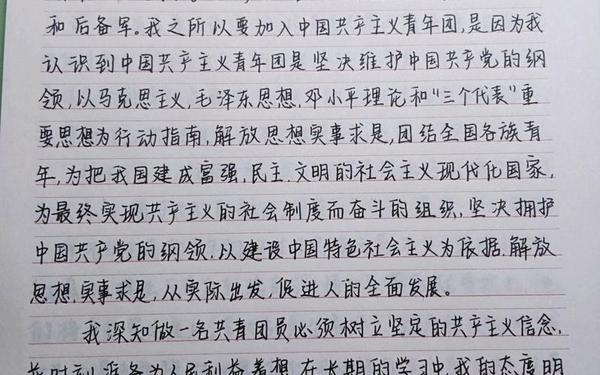 和后备军。我之所以要加入中国共产主义青年团,是因为我
认识到中国共产主义青年团是坚决维护中国共产党的纲
领,以马克思主义,毛泽东思想,邓小平理论和“三个代表”重
要思想为行动指南,解放思想实事求是,团结全国各族青
年,为把我国建成富强,民主.文明的社会主义现代化国家,
为最终实现共产主义的社会制度而奋斗的组织,坚决拥护
中国共产党的纲领.以建设中国特色社会主义为依据.解放
思想,实事求是,从实际出发,促进人的全面发展。
我深知做一名共青团员必须树立坚定的共产主义信念,
时刻准备为人民利益着想.在长期的学习中.我的态度明